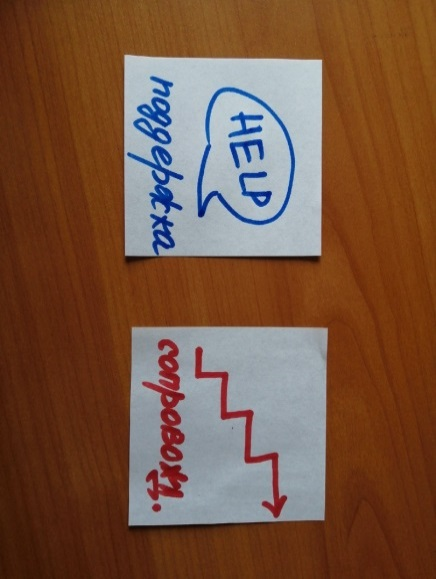 HELP
поддержка
сопровожд.